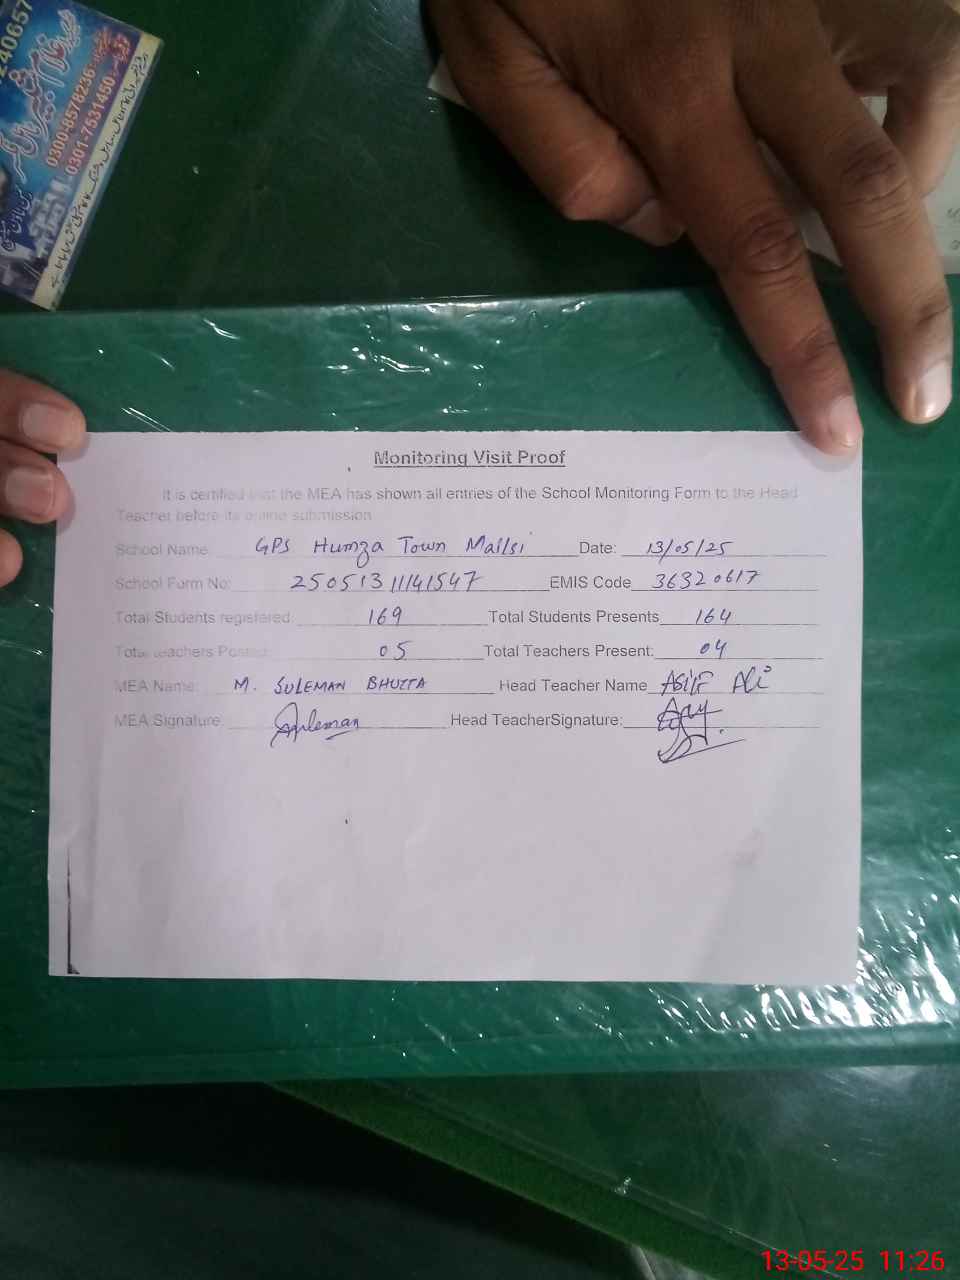 240657
0300-8578236
0301-7531450
Monitoring Visit Proof
It is certified that the MEA has shown all entries of the School Monitoring Form to the Head
Teacher before its online submission
School Name: GPS Humza Town Mailsi Date: 13/05/25
School Form No: 25051311141547 EMIS Code 36320617
Total Students registered: 169 Total Students Presents 164
Total teachers Posted: 05 Total Teachers Present: 04
MEA Name: M. SULEMAN BHUTTA Head Teacher Name ASIF Ali
MEA Signature: Suleman Head TeacherSignature:
13-05-25 11:26